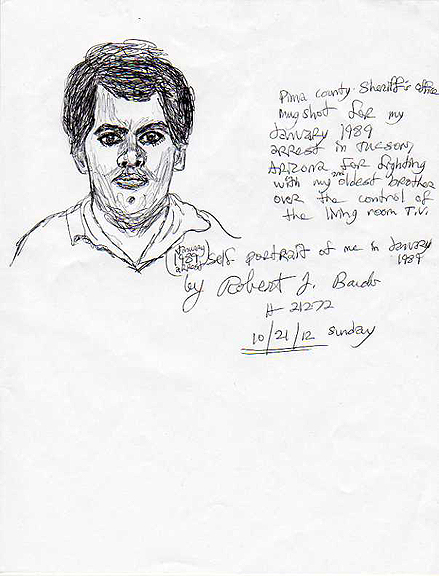 Pima county Sheriff's office
mugshot for my
January 1989
arrest in Tucson,
Arizona for fighting
with my 2nd oldest brother
over the control of
the living room T.V.
(January 1989 arrest) Self portrait of me in January
1989
by Robert J. Bardo
# 21272
10/21/12 Sunday